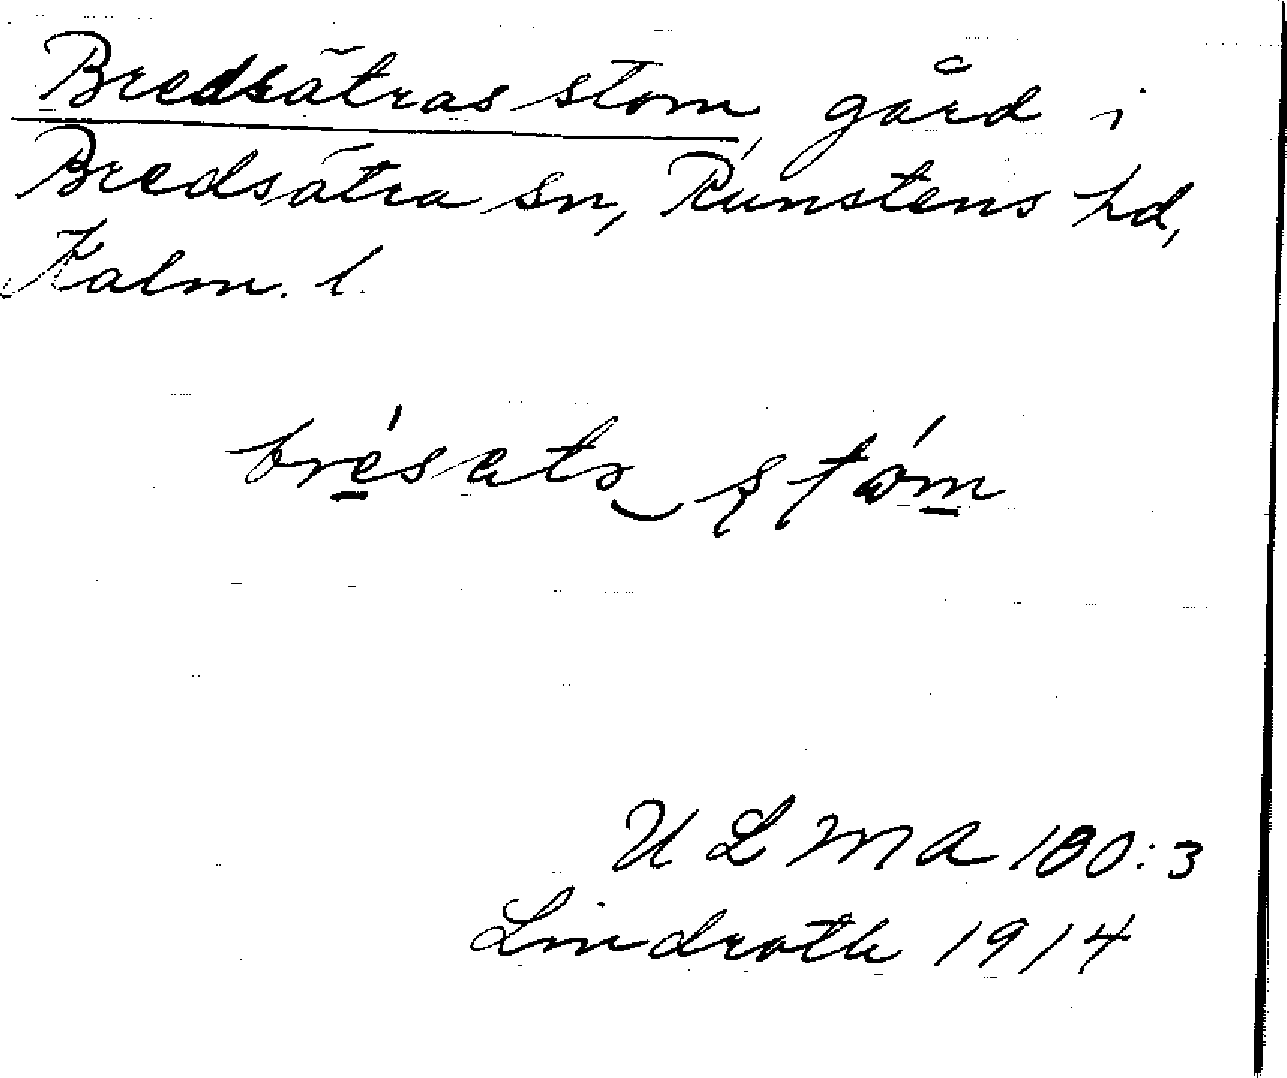 Bredsätras stom, gård i
Bredsätra sn, Runstens hd,
Kalm. l.
brésats stóm
ULMA 180:3
Lindroth 1914